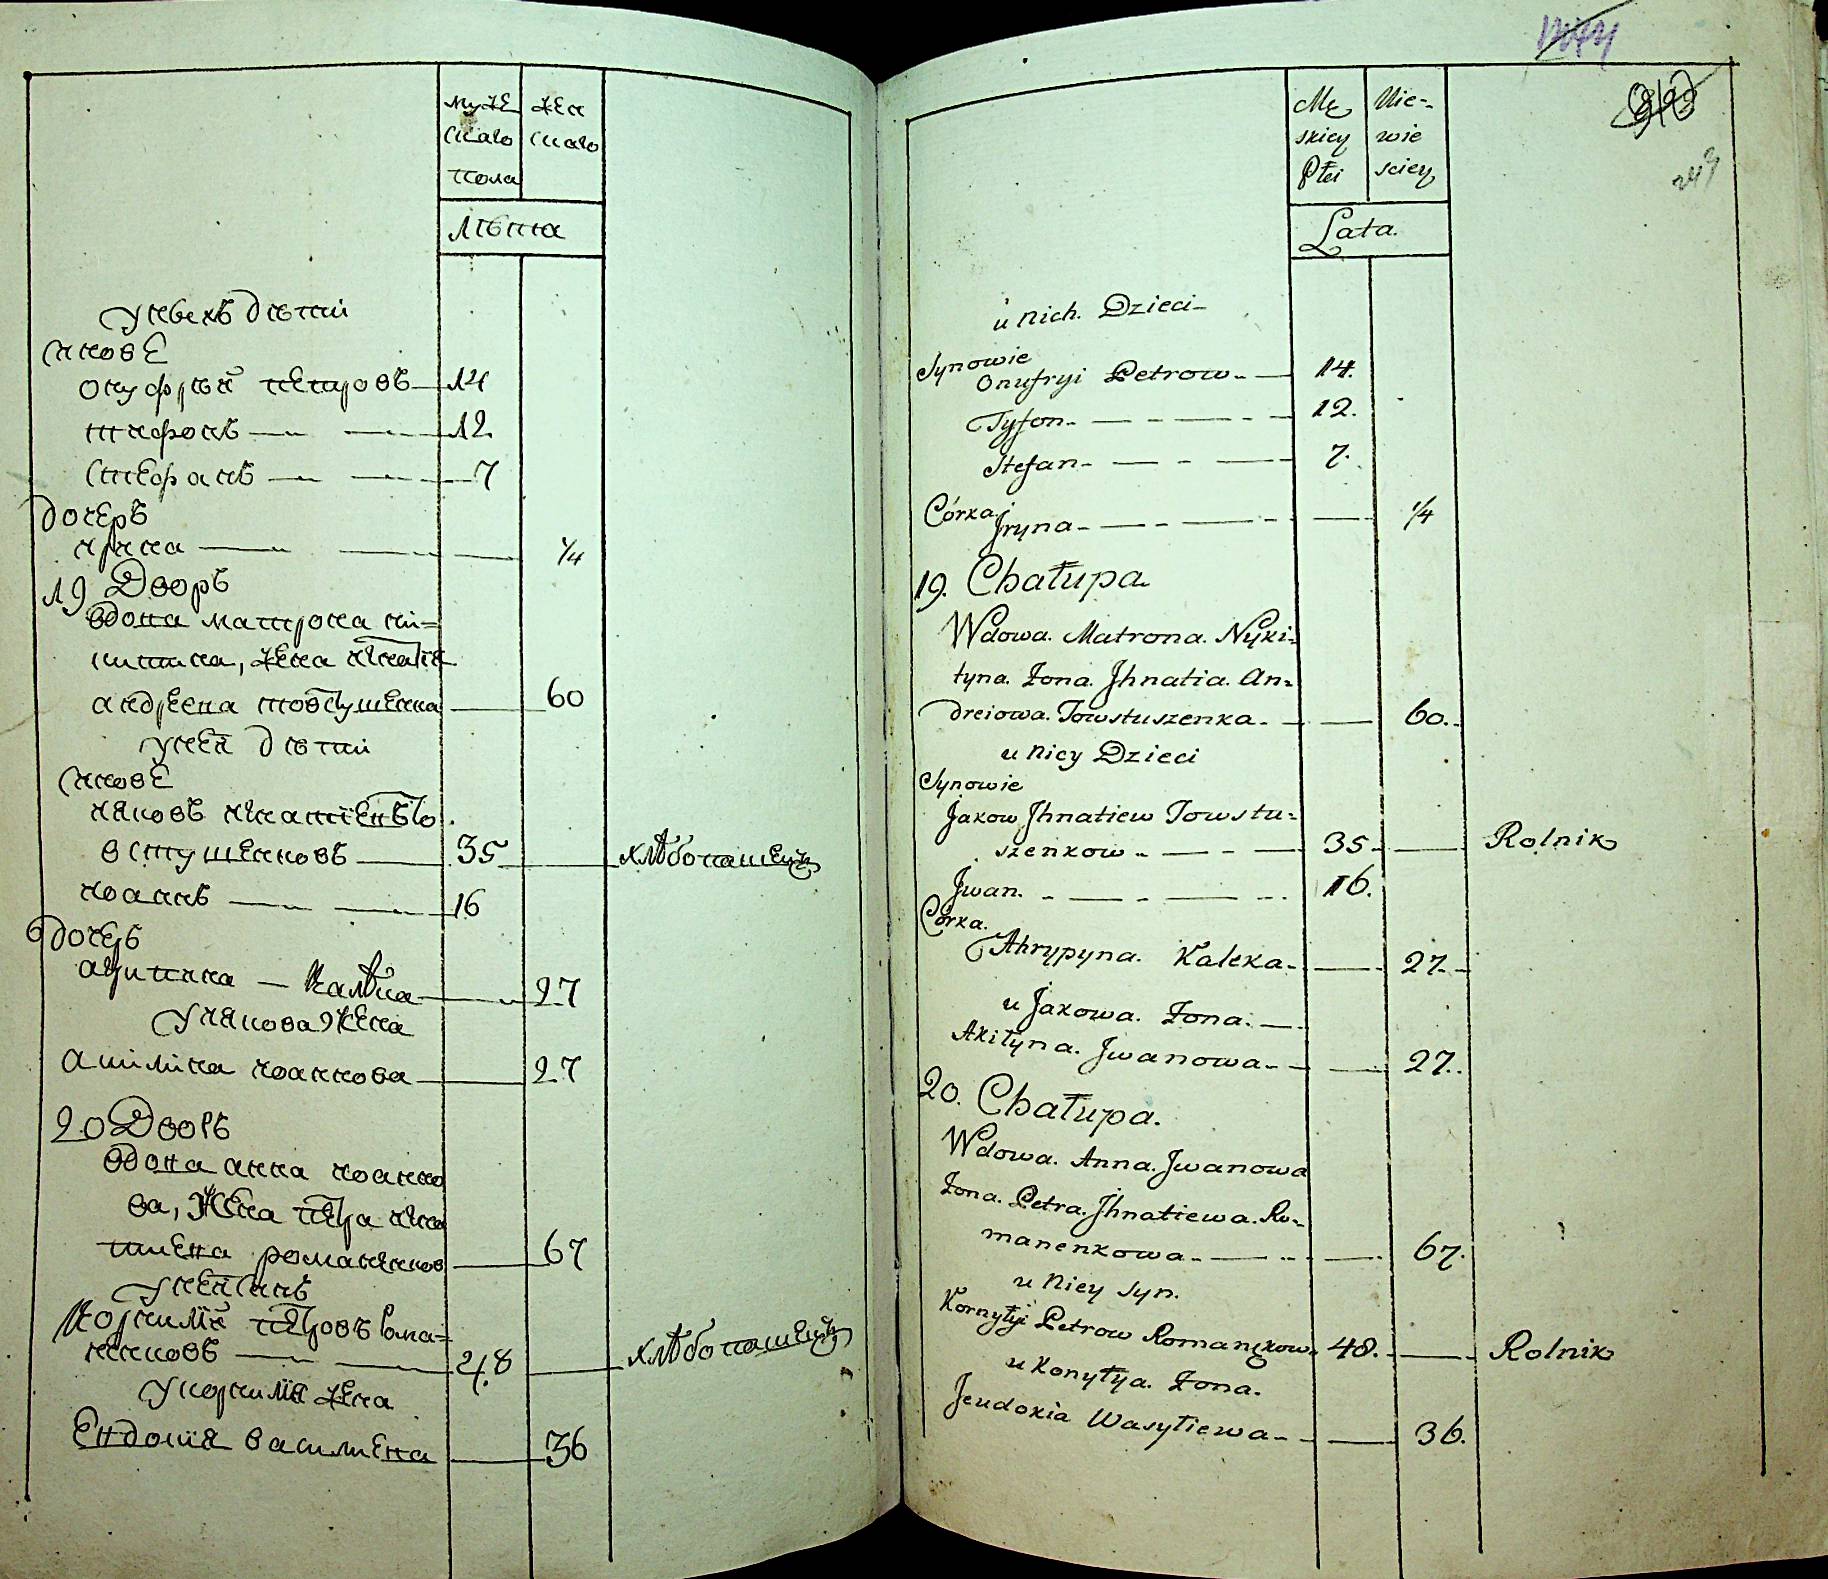 муже
скаго
пола
жен
скаго
лѣта
у нихъ дѣти
сынове
онуфрій петровъ 14
тифонъ 12
стефанъ 7
дочерь
ирина 1/4
19 Дворъ
вдова матрона ни=
китина, жена игнатія
андреева товстушенка 60
у неи дѣти
сынове
яковъ игнатіевъ то
встушенковъ 35 хлѣбопашецъ
иоаннъ 16
дочерь
агрипина — калѣка 27
у якова жена
акилина иоаннова 27
20 Дворъ
вдова анна иоанно
ва, жена петра игна
тиева романенкова 67
у неи синъ
корнилій петровъ рома=
ненковъ 48 хлѣбопашецъ
у корнилія жена
евдокія василиева 36
Mę
skiey
Płci
Nie-
wie
sciey
Lata.
u nich. Dzieci
Synowie
Onufryi Petrow 14.
Tyfon 12.
Stefan 7.
Córka.
Jryna 1/4
19. Chałupa
Wdowa. Matrona. Nyki=
tyna. Żona. Jhnatia. An=
dreiowa. Towstuszenka. 60.
u niey Dzieci
Synowie
Jakow Jhnatiew Towstu=
szenkow 35 Rolnik
Jwan. 16.
Córka.
Ahrypyna. Kaleka 27.
u Jakowa. Żona.
Akiłyna. Jwanowa 27.
20. Chałupa.
Wdowa. Anna. Jwanowa
Żona. Petra. Jhnatiewa. Ro=
manenkowa 67.
u niey syn.
Kornyłyi Petrow Romanękow 48. Rolnik
u Konyłyja. Żona.
Jeudoxia Wasyliewa 36.